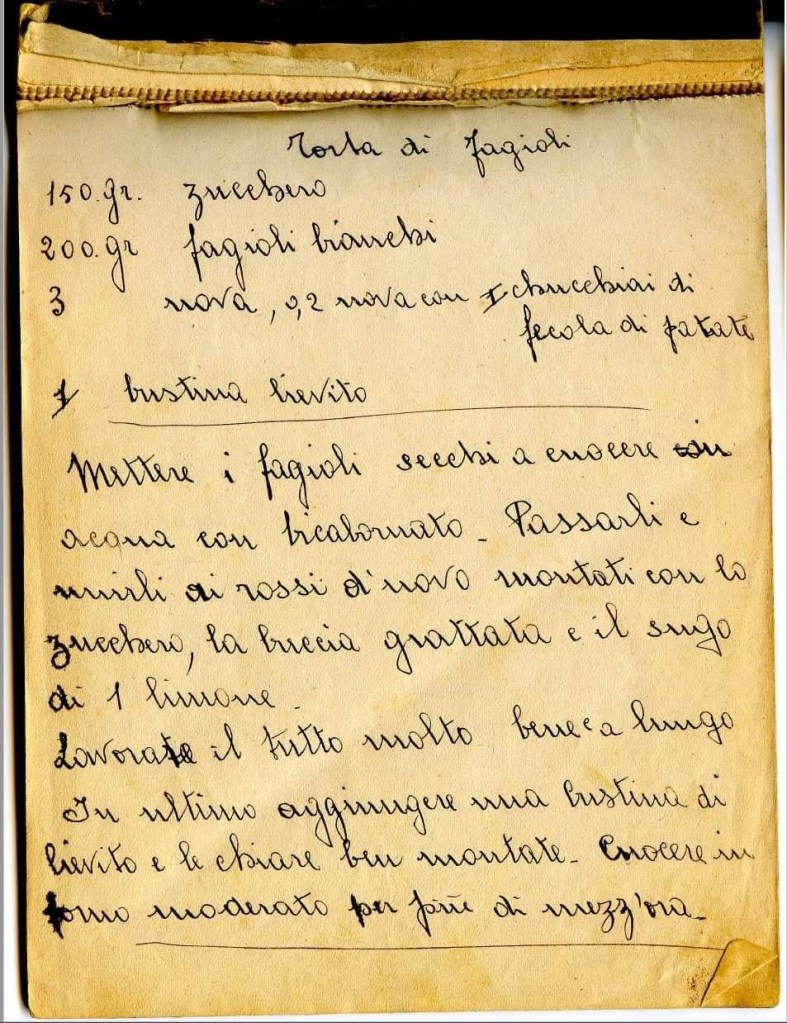 Torta di fagioli
150.gr. zucchero
200.gr fagioli bianchi
3 uova, o, 2 uova con 1 chucchiai di
fecola di patate
1 bustina lievito
Mettere i fagioli secchi a cuocere in
acqua con bicabornato - Passarli e
unirli ai rossi d'uovo montati con lo
zucchero, la buccia grattata e il sugo
di 1 limone.
Lavorate il tutto molto bene e a lungo
In ultimo aggiungere una bustina di
lievito e le chiare ben montate - Cuocere in
forno moderato per più di mezz'ora -